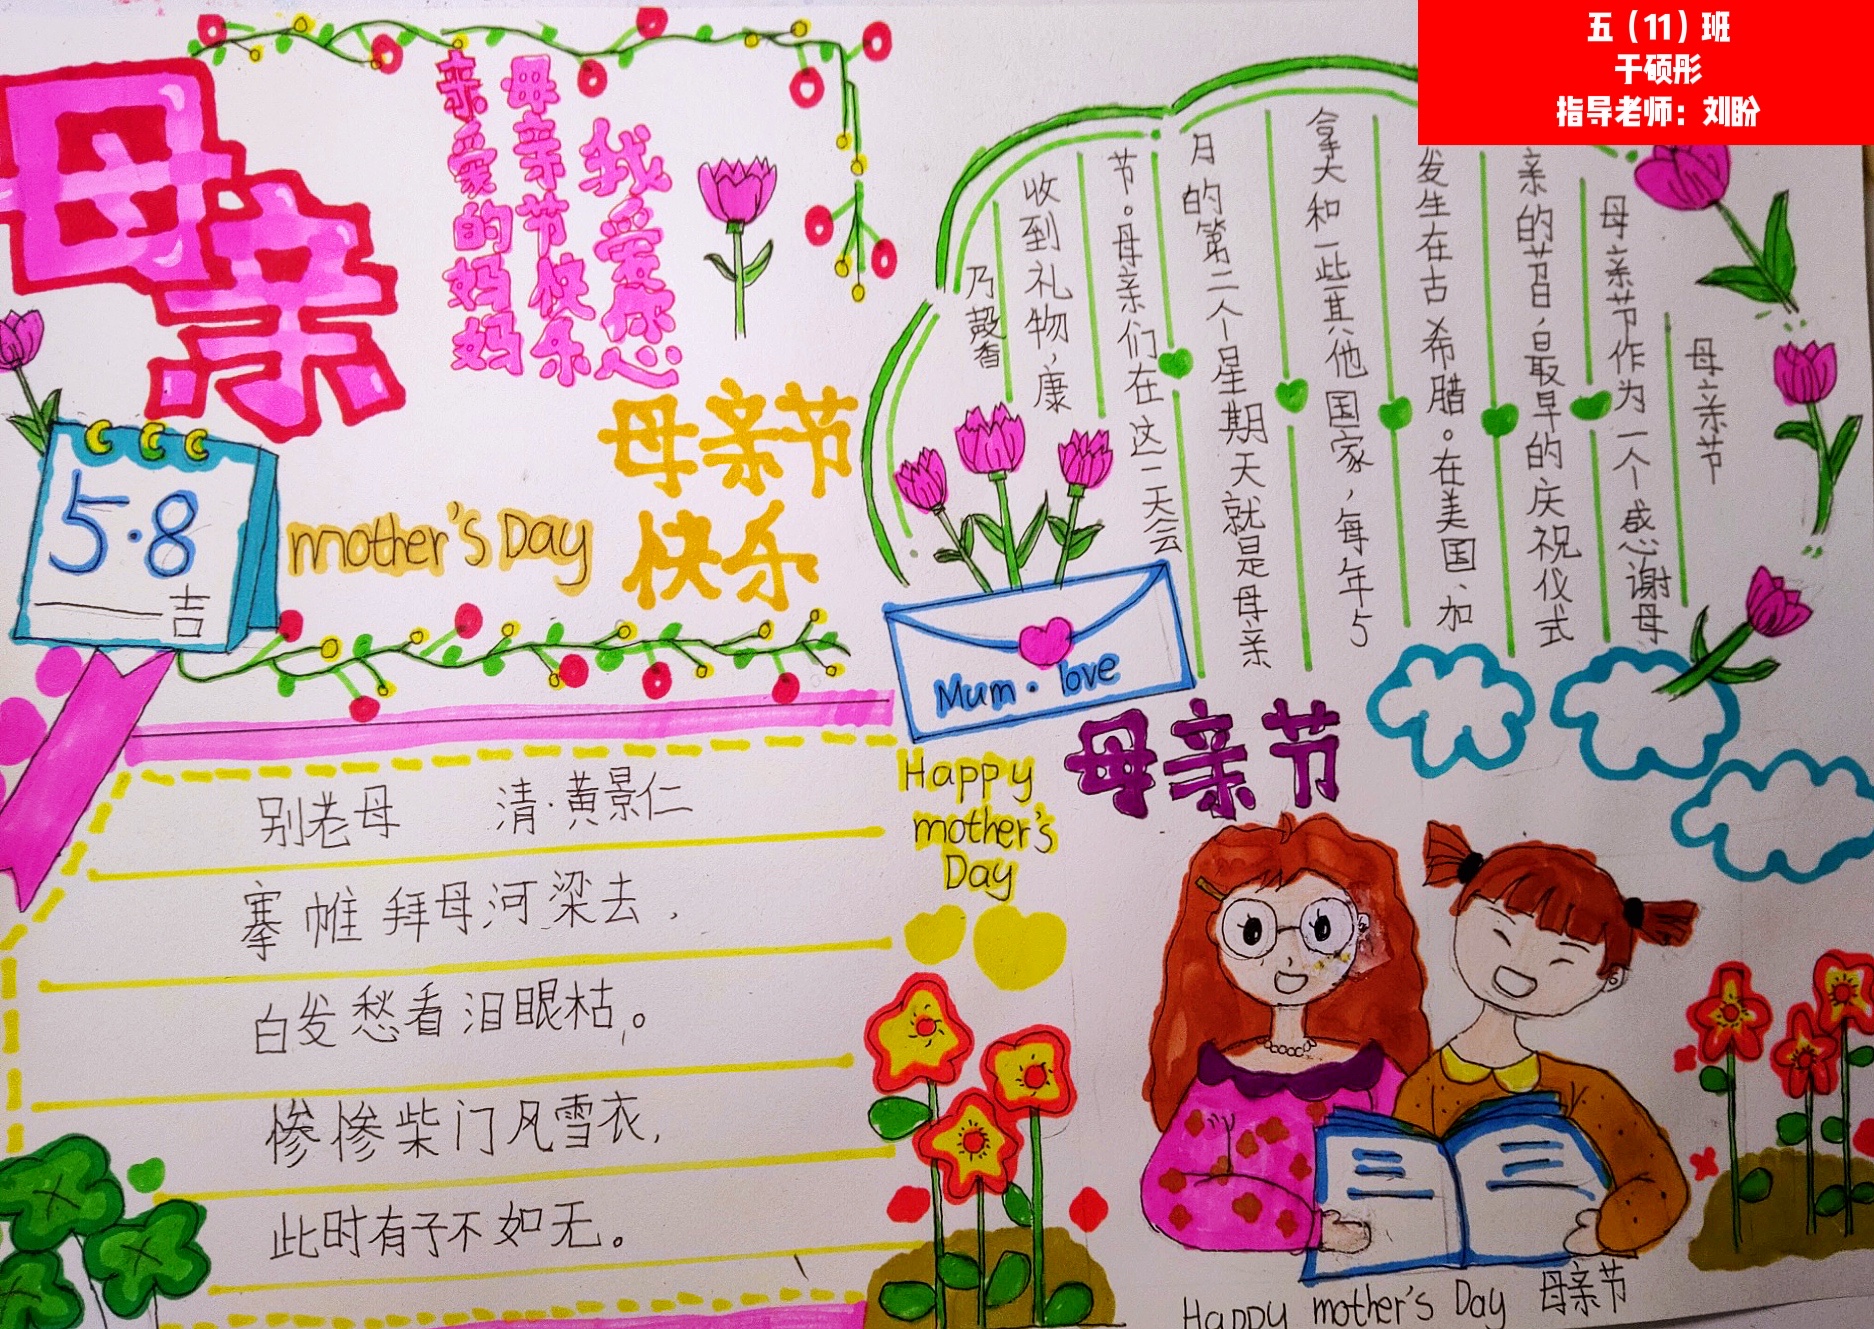 五（11）班
干硕彤
指导老师：刘盼
母亲
亲爱的妈妈
母亲节快乐
我爱您
母亲节
快乐
5·8
吉
mother's Day
母亲节
母亲节作为一个感谢母
亲的节日，最早的庆祝仪式
发生在古希腊。在美国、加
拿大和一些其他国家，每年5
月的第二个星期天就是母亲
节。母亲们在这一天会
收到礼物，康
乃馨香
Mum·love
母亲节
Happy
mother's
Day
别老母 清·黄景仁
搴帷拜母河梁去，
白发愁看泪眼枯。
惨惨柴门风雪衣，
此时有子不如无。
Happy mother's Day 母亲节